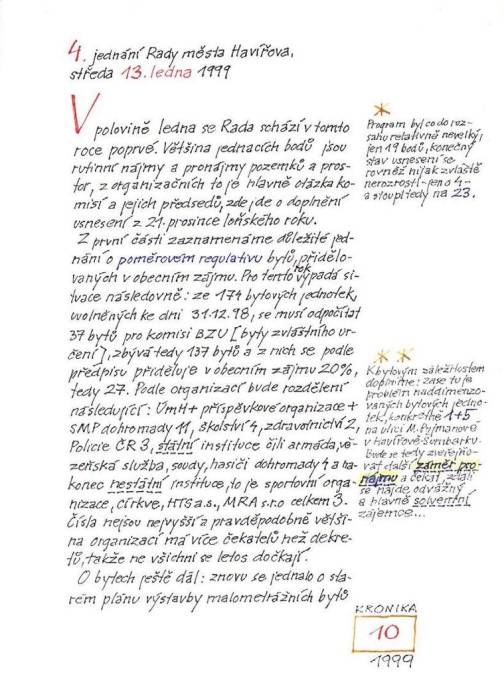 4. jednání Rady města Havířova,
středa 13. ledna 1999
V polovině ledna se Rada schází v tomto
roce poprvé. Většina jednacích bodů jsou
rutinní nájmy a pronájmy pozemků a pros-
tor, z organizačních to je hlavně otázka ko-
misí a jejich předsedů, zde jde o doplnění
usnesení z 21. prosince loňského roku.
Z první části zaznamenáme důležité jed-
nání o poměrovém regulativu bytů, přidělo-
vaných v obecním zájmu. Pro tento rok vypadá si-
tuace následovně: ze 174 bytových jednotek,
uvolněných ke dni 31.12.98, se musí odpočítat
37 bytů pro komisi BZU [byty zvláštního ur-
čení], zbývá tedy 137 bytů a z nich se podle
předpisu přiděluje v obecním zájmu 20%,
tedy 27. Podle organizací bude rozdělení
následující: ÚmH + příspěvkové organizace +
SMP dohromady 11, školství 4, zdravotnictví 2,
Policie ČR 3, státní instituce čili armáda, vě-
zeňská služba, soudy, hasiči dohromady 4 a na-
konec nestátní instituce, to je sportovní orga-
nizace, církve, HTS a.s., MRA s.r.o celkem 3.
Čísla nejsou nejvyšší a pravděpodobně větši-
na organizací má více čekatelů než dekre-
tů, takže ne všichni se letos dočkají.
O bytech ještě dál: znovu se jednalo o sta-
rém plánu výstavby malometrážních bytů
Program byl co do roz-
sahu relativně nevelký,
jen 19 bodů, konečný
stav usnesení se
rovněž nijak zvláště
nerozrostl – jen o 4 –
a stoupl tedy na 23.
K bytovým záležitostem
doplníme: zase tu je
problém naddimenzo-
vaných bytových jedno-
tek, konkrétně 1+5
na ulici M. Pujmanové
v Havířově-Šumbarku.
Bude se tedy zveřejňo-
vat další záměr pro-
nájmu a čekat, zdali
se najde odvážný
a hlavně solventní
zájemce...
KRONIKA
10
1999